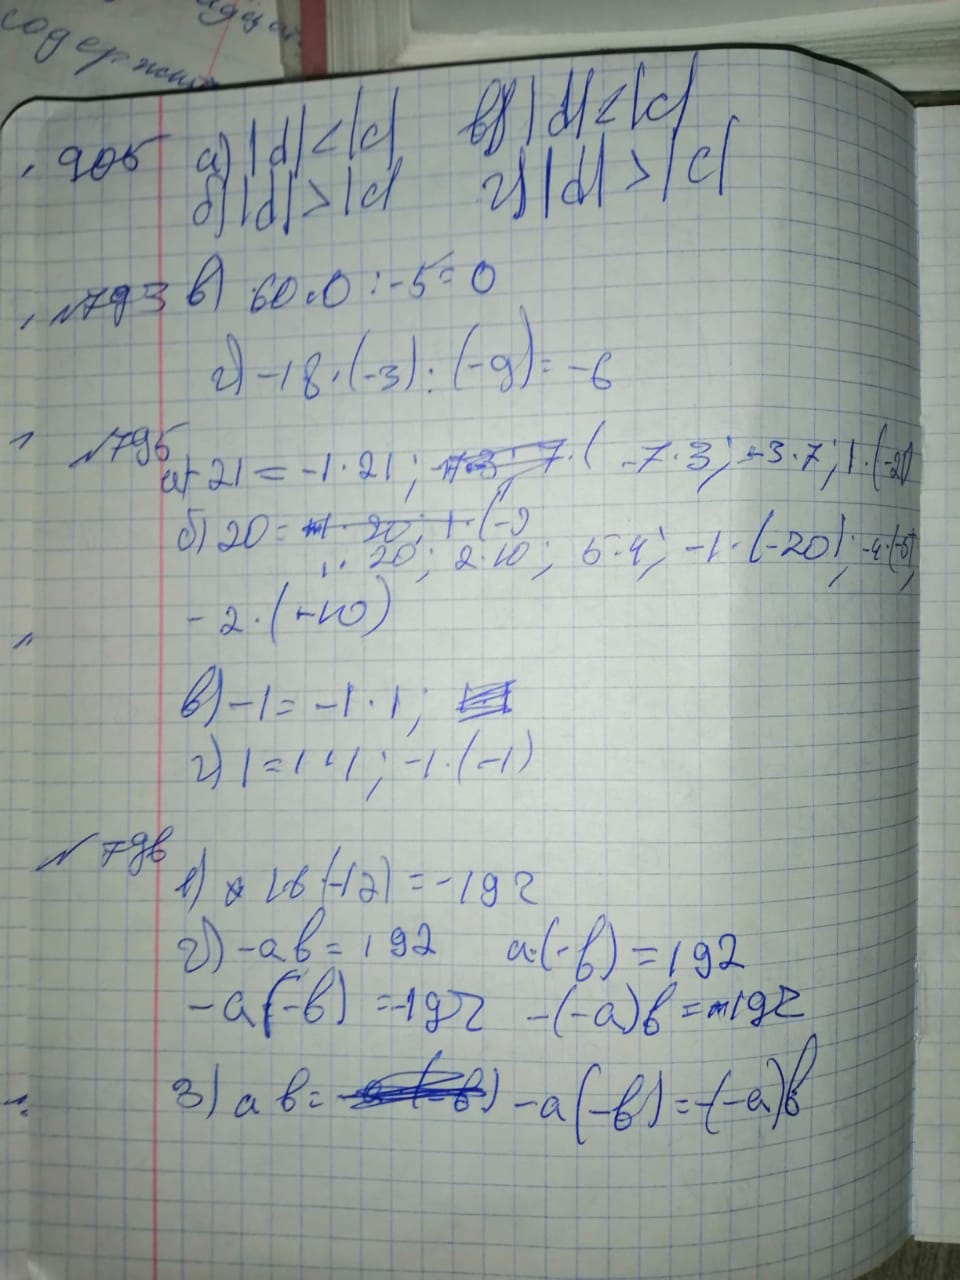 содержи
905 а) |d|<|c| в) |d|<|c|
б) |d|>|c| г) |d|>|c|
№793 в) 60·0:-5=0
г) -18·(-3):(-9)=-6
№795
а) -21=-1·21; -7·3; -3·7; 1·(-21)
б) 20=
1·20; 2·10; 5·4; -1·(-20); -4·(-5);
-2·(-10)
в) -1=-1·1;
г) 1=1·1; -1·(-1)
№796
1) 16(-12)=-192
2) -ab=192 a·(-b)=192
-a(-b)=-192 -(-a)b=-192
3) ab= -a(-b)=-(-a)b